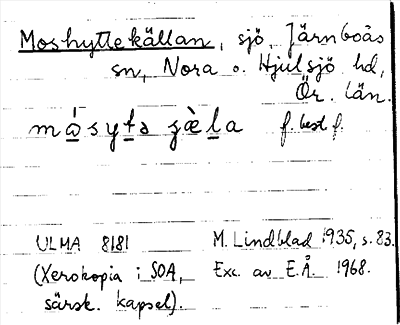 Moshyttekällan, sjö, Järnboås
sn, Nora o. Hjulsjö hd,
Ör. län.
må̀syta ʒæ̀la f. best f.
ULMA 8181 M. Lindblad 1935, s. 83.
(Xerokopia i SOA, Exc. av E.Å. 1968.
särsk. kapsel).